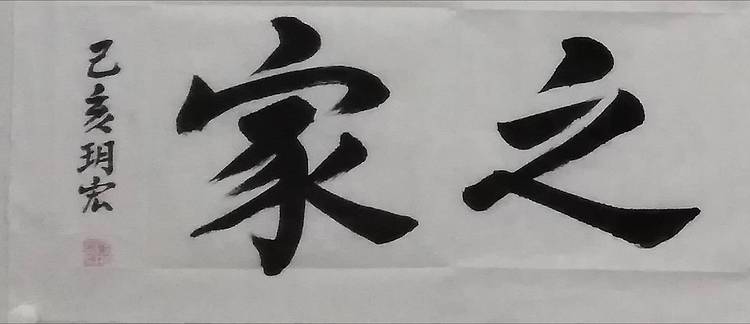 之家
己亥玥宏